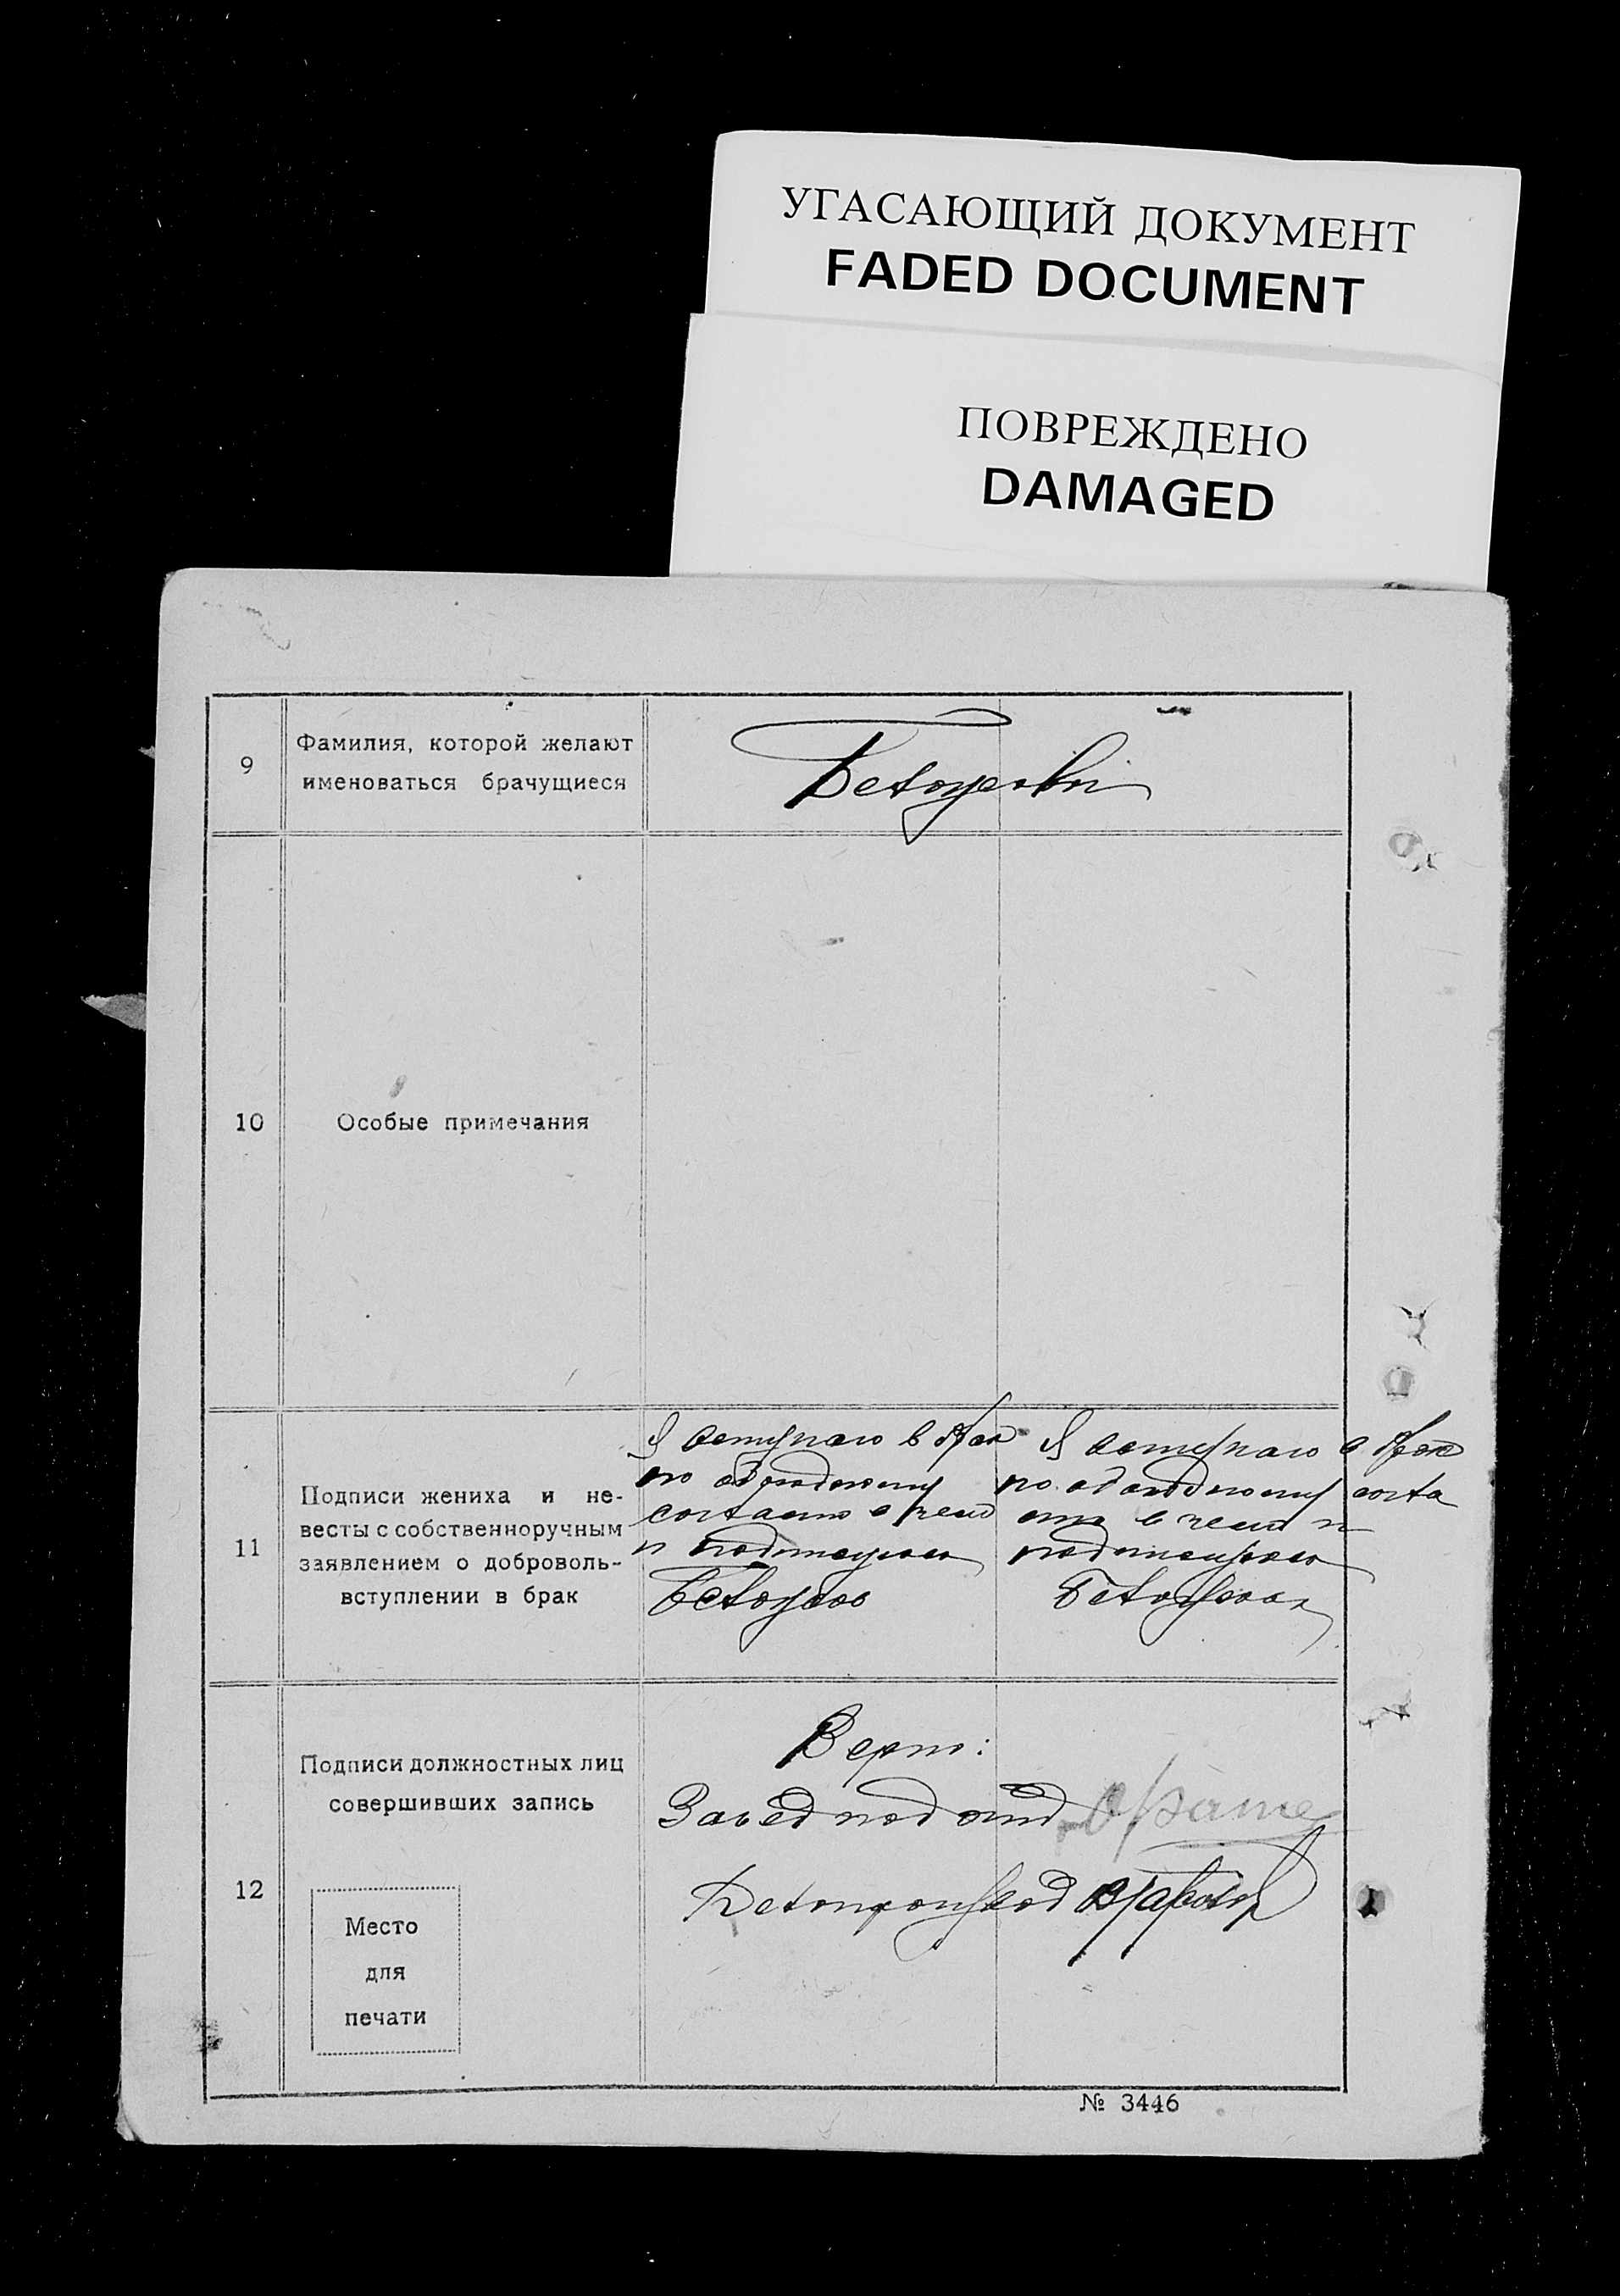 УГАСАЮЩИЙ ДОКУМЕНТ
FADED DOCUMENT
ПОВРЕЖДЕНО
DAMAGED
9
Фамилия, которой желают
именоваться брачущиеся
10
Особые примечания
11
Подписи жениха и не-
весты с собственноручным
заявлением о доброволь-
вступлении в брак
Я вступаю в брак
по обоюдному
согласию в чем
и подписуюсь
Я вступаю в брак
по обоюдному согла
сию в чем и
подписуюсь
12
Подписи должностных лиц
совершивших запись
Место
для
печати
Верно:
Завед под отд
Делопроизвод
№ 3446